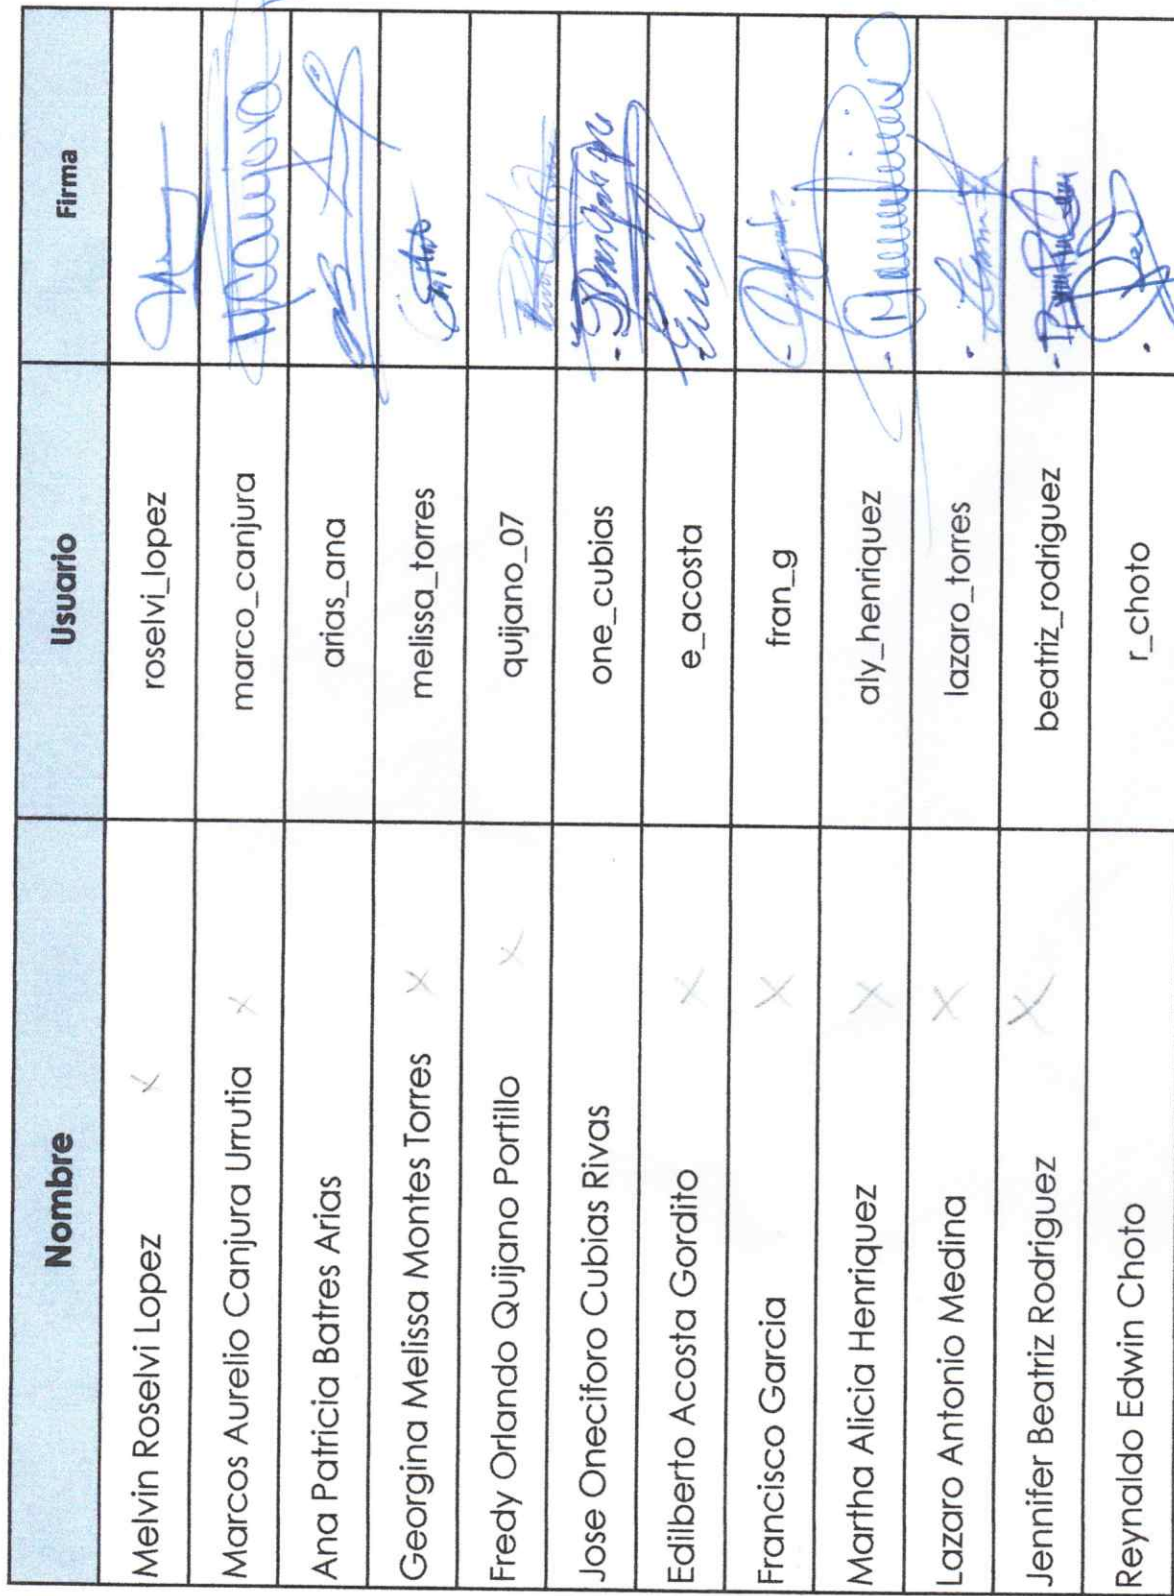 Nombre Usuario Firma
Melvin Roselvi Lopez x roselvi_lopez
Marcos Aurelio Canjura Urrutia x marco_canjura
Ana Patricia Batres Arias arias_ana
Georgina Melissa Montes Torres x melissa_torres
Fredy Orlando Quijano Portillo x quijano_07
Jose Oneciforo Cubias Rivas one_cubias
Edilberto Acosta Gordito x e_acosta
Francisco Garcia x fran_g
Martha Alicia Henriquez x aly_henriquez
Lazaro Antonio Medina x lazaro_torres
Jennifer Beatriz Rodriguez x beatriz_rodriguez
Reynaldo Edwin Choto r_choto